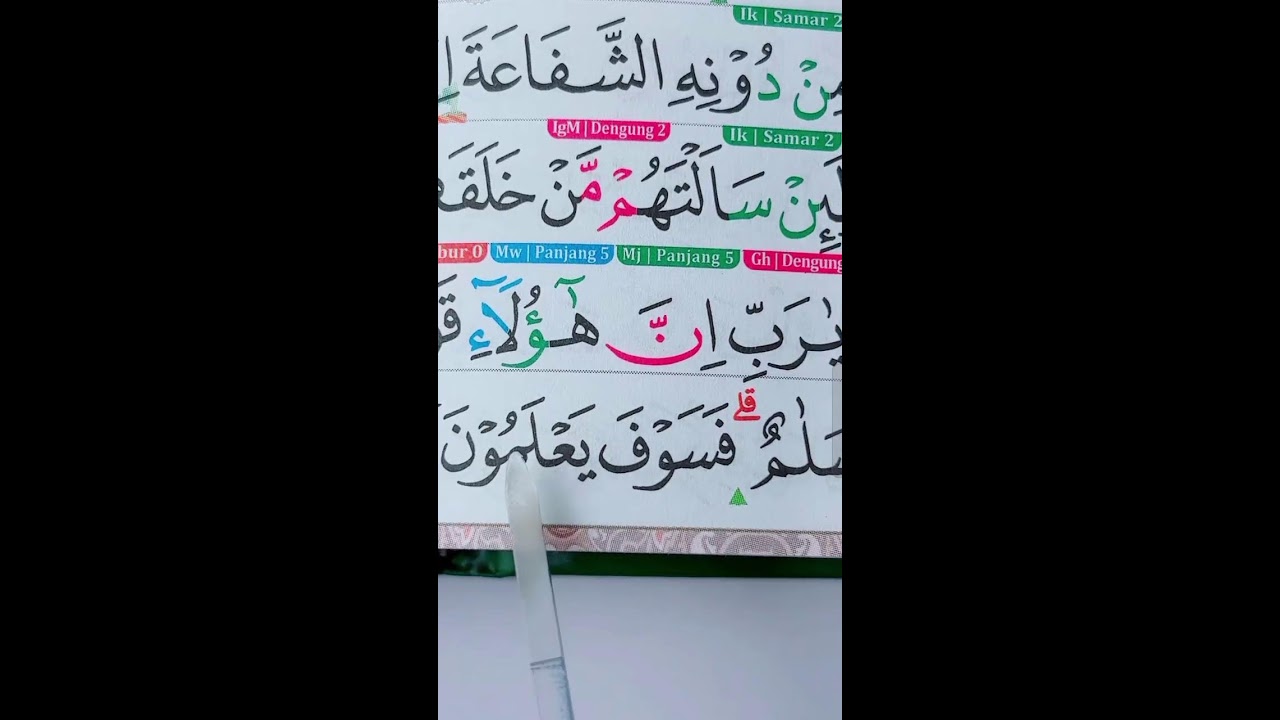 Ik | Samar 2
مِنْ دُوْنِهِ الشَّفَاعَةَ
IgM | Dengung 2 Ik | Samar 2
سَاَلْتَهُمْ مَّنْ
Mw | Panjang 5 Mj | Panjang 5 Gh | Dengung
يٰرَبِّ اِنَّ هٰٓؤُلَاۤءِ
سَلٰمٌۗ فَسَوْفَ يَعْلَمُوْنَ